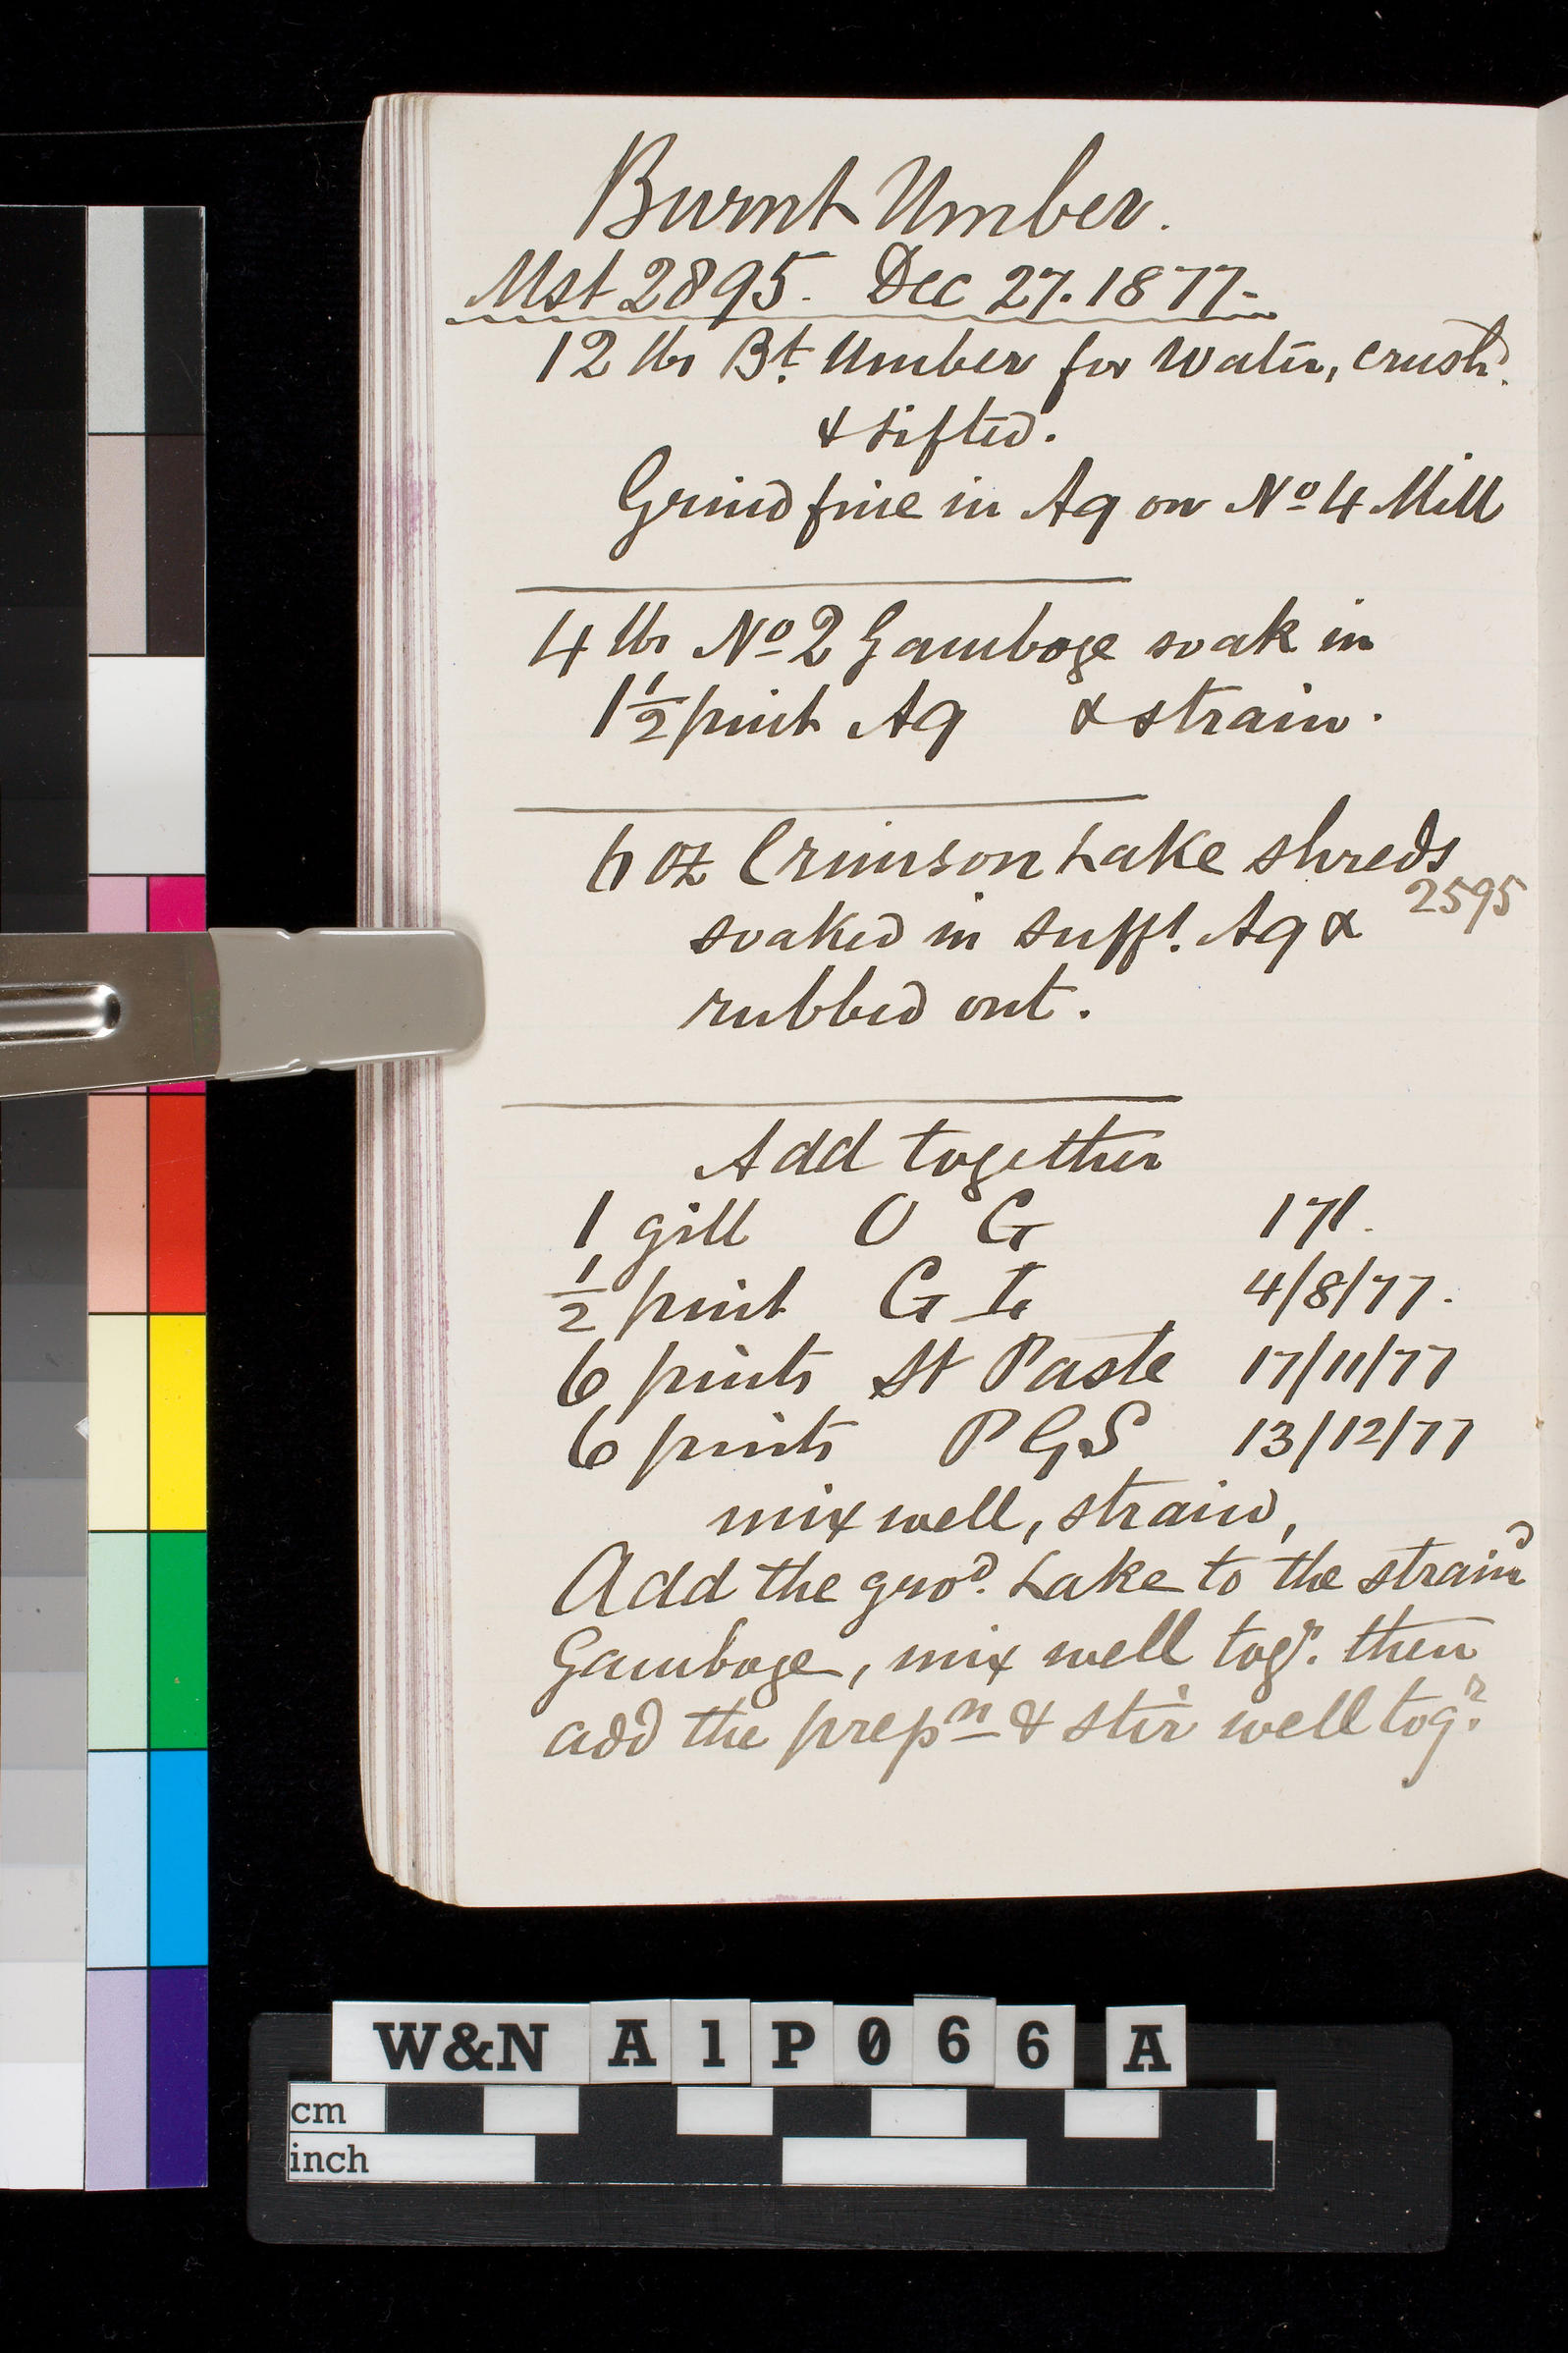 Burnt Umber.
Mst 2895. Dec 27. 1877-
12 lbs Bt. Umber for Water, crushd.
& sifted.
Grind fine in Aq on No 4 Mill
4 lbs No 2 Gamboge soak in
1 1/2 pint Aq & strain.
6 oz Crimson Lake shreds
2595
soaked in sufft. Aq &
rubbed out.
Add together
1 gill O G 171.
1/2 pint G L 4/8/77.
6 pints St Paste 17/11/77
6 pints P G S 13/12/77
mix well, strain,
Add the grod. Lake to the straind
Gamboge, mix well togr. then
add the prepn & stir well togr.
W&N A1P066 A
cm
inch